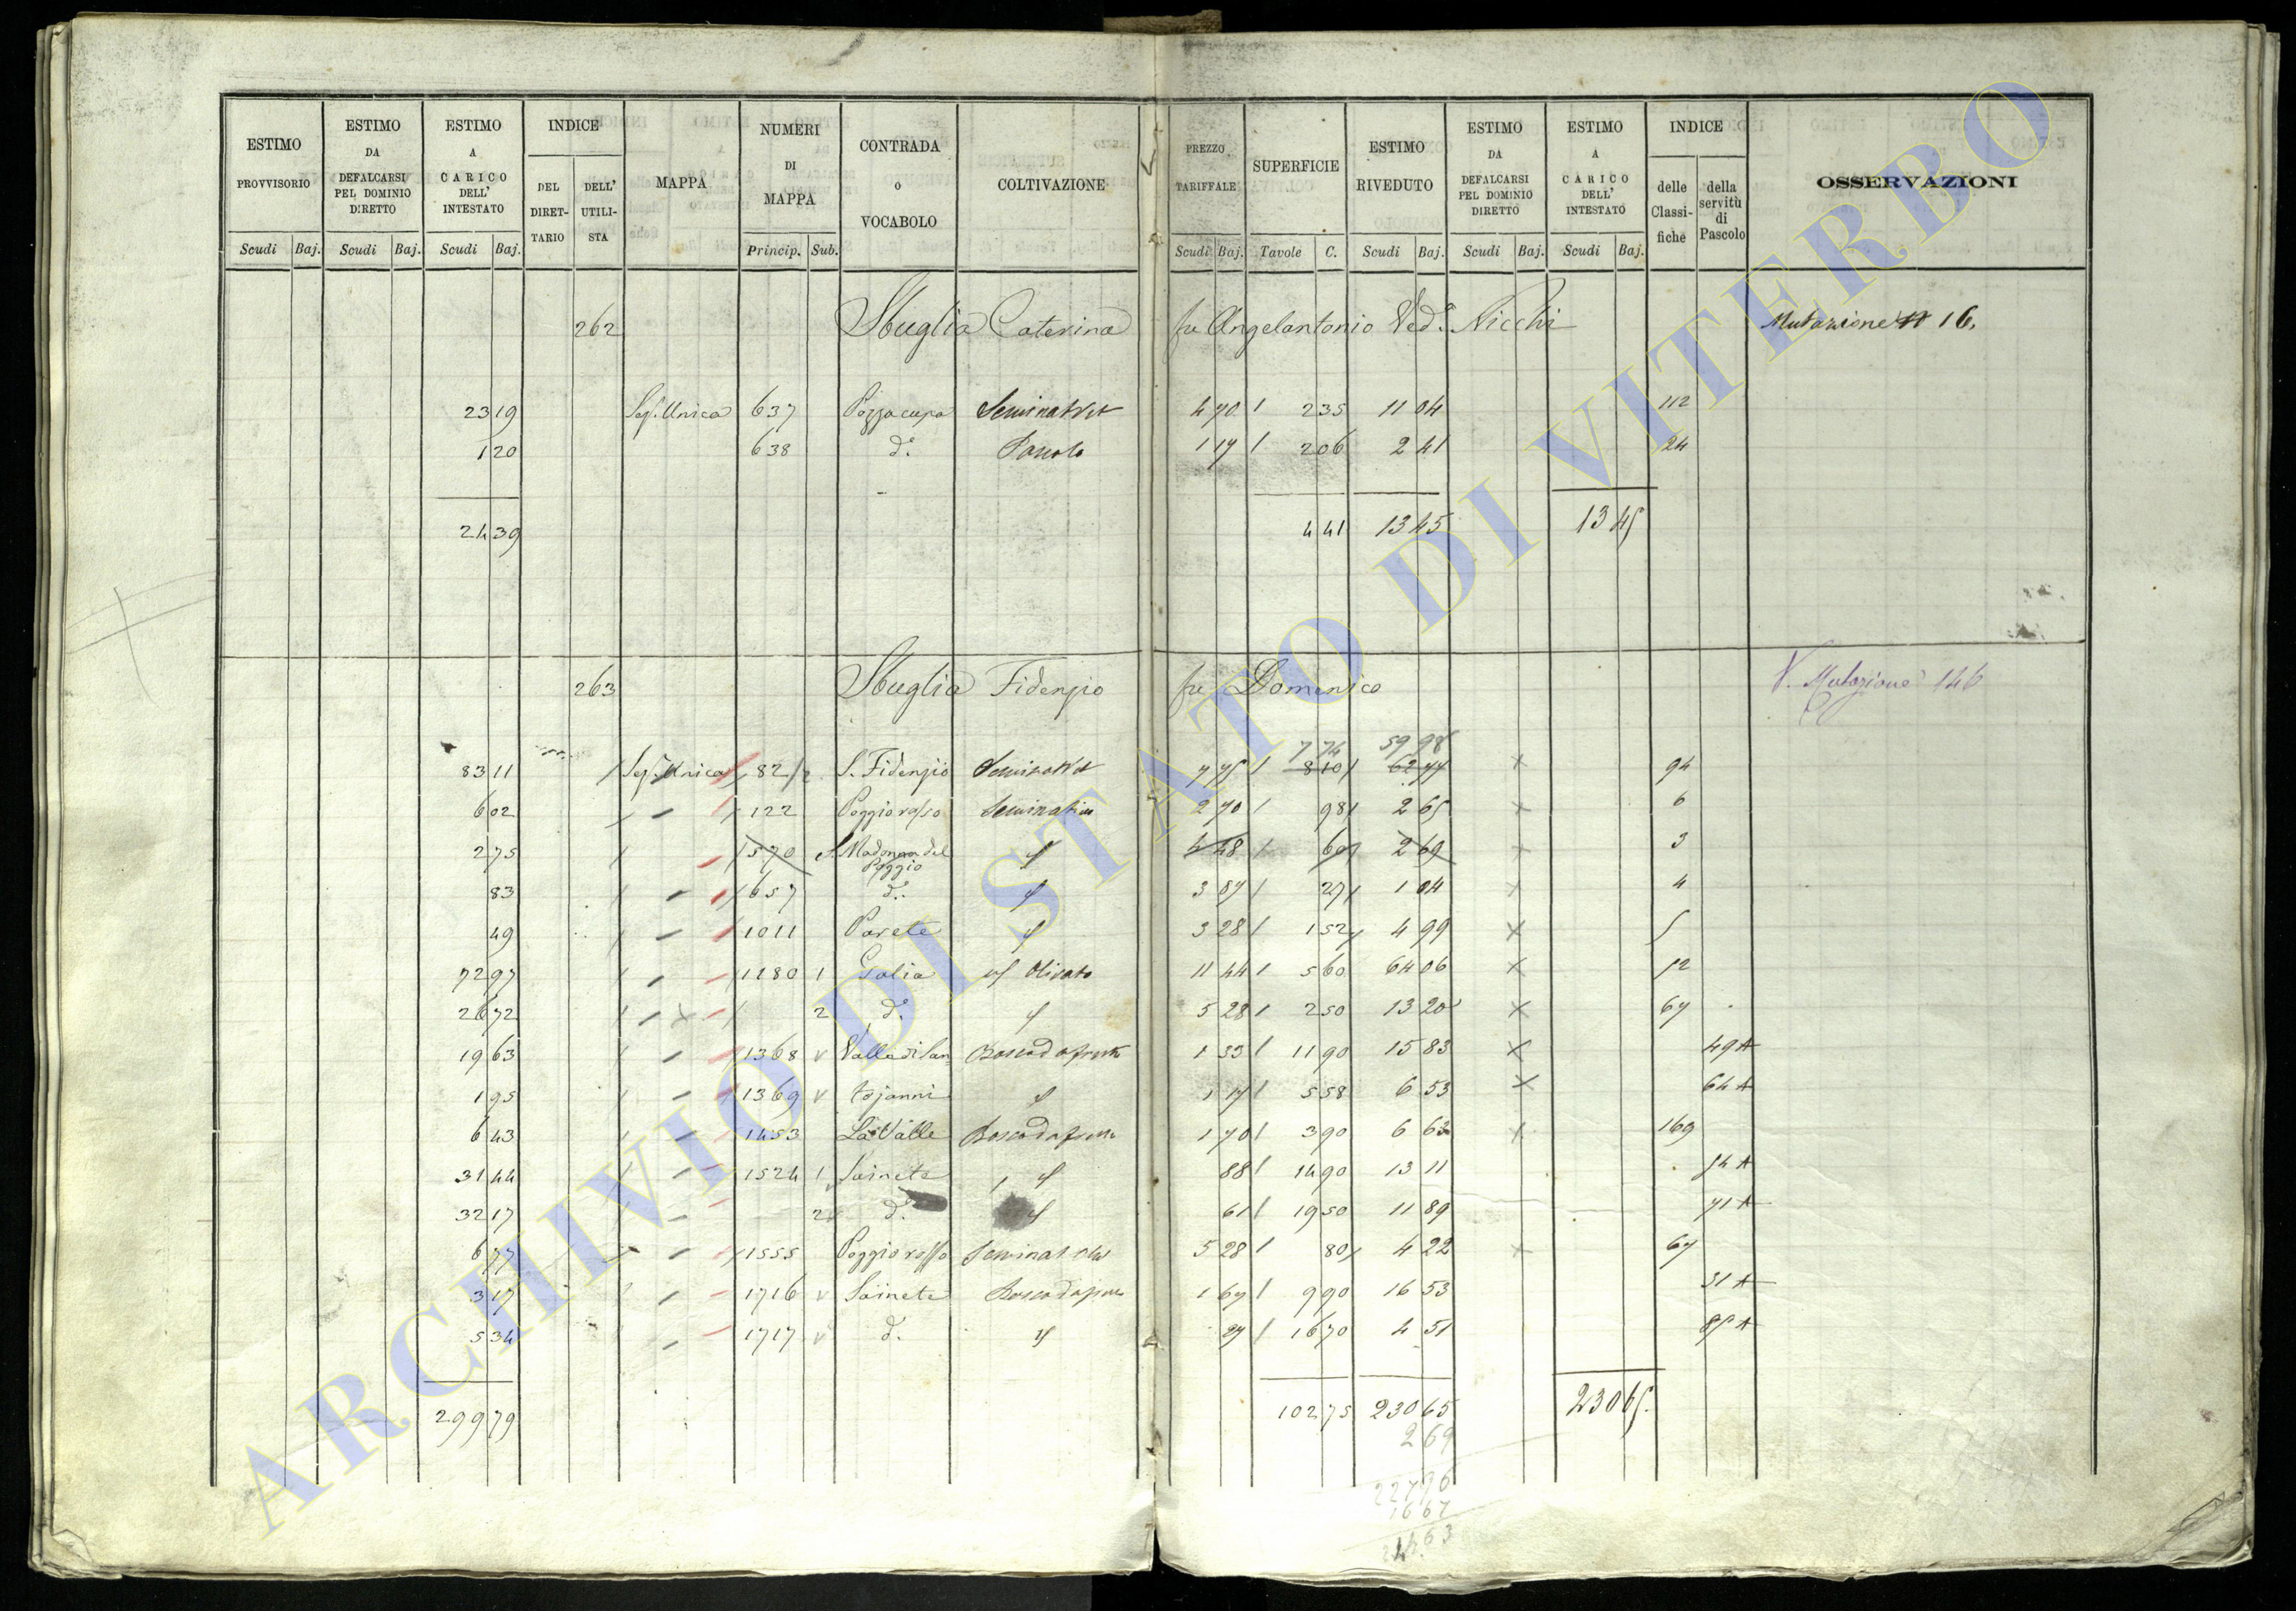 ESTIMO PROVVISORIO Scudi Baj. | ESTIMO DA DEFALCARSI PEL DOMINIO DIRETTO Scudi Baj. | ESTIMO A CARICO DELL' INTESTATO Scudi Baj. | INDICE DEL DIRET-TARIO | DELL' UTILI-STA | MAPPA | NUMERI DI MAPPA Princip. Sub. | CONTRADA O VOCABOLO | COLTIVAZIONE | PREZZO TARIFFALE Scudi Baj. | SUPERFICIE Tavole C. | ESTIMO RIVEDUTO Scudi Baj. | ESTIMO DA DEFALCARSI PEL DOMINIO DIRETTO Scudi Baj. | ESTIMO A CARICO DELL' INTESTATO Scudi Baj. | INDICE delle Classi-fiche | della servitù di Pascolo | OSSERVAZIONI
262 Sbuglia Caterina fu Angelantonio Ved.ª Nicchi Mutazione 16
23 19 Sez. Unica 637 Pozzacupa Seminat Vit 4 70 / 2 35 11 04 112
1 20 638 d.º Pascolo 1 17 / 2 06 2 41 24
24 39 4 41 13 45 13 45
263 Sbuglia Fidenzio fu Domenico V. Mutazione 146
7 74 59 98
83 11 Sez. Unica 82 / 2 S. Fidenzio Seminat Vit 7 75 / 8 10 62 77 X 94
6 02 122 Poggio rosso Seminativo 2 70 / 98 2 65 X 6
2 75 570 Madonna del Poggio 4 48 / 60 2 69 X 3
83 657 d.º 3 87 / 27 1 04 X 4
49 1011 Parete 3 28 / 1 52 4 99 X 5
72 97 1280 1 Galia Olivato 11 44 / 5 60 64 06 X 12
26 72 2 d.º 5 28 / 2 50 13 20 X 67
19 63 1368 Valle di San Bosco da frutto 1 33 / 11 90 15 83 X 49 A
1 95 1369 tojanni 1 17 / 5 58 6 53 X 64 A
6 43 1453 La Valle Bosco da frutto 1 70 / 3 90 6 63 X 169
31 44 1524 1 Sainete 88 / 14 90 13 11 54 A
32 17 2 d.º 61 / 19 50 11 89 71 A
6 77 1555 Poggio rosso Seminat Oliv 5 28 / 80 4 22 X 67
3 17 1716 Sainete Bosco da frutto 1 67 / 9 90 16 53 31 A
5 34 1717 d.º 27 / 16 70 4 51 85 A
299 79 102 75 230 65 230 65
2 69
227 96
16 67
ARCHIVIO DI STATO DI VITERBO